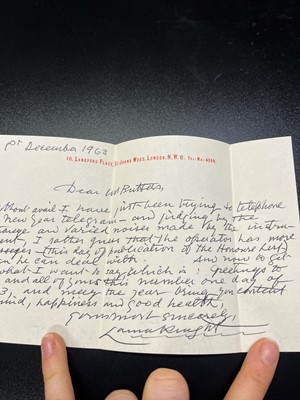 st December 1962
16, Langford Place, St. Johns Wood, London, N.W.8.
Dear Mr Butters,
thout avail I have just been trying to telephone
New Year telegram — and judging by the
and varied noises made by the instru-
ent, I rather guess that the operator has more
this day of publication of the Honours List
he can deal with. And now to get
what I want to say, which is: greetings to
and all of yours this number one day of
3, and may the year bring you content
mind, happiness and good health,
yours most sincerely,
Laura Knight